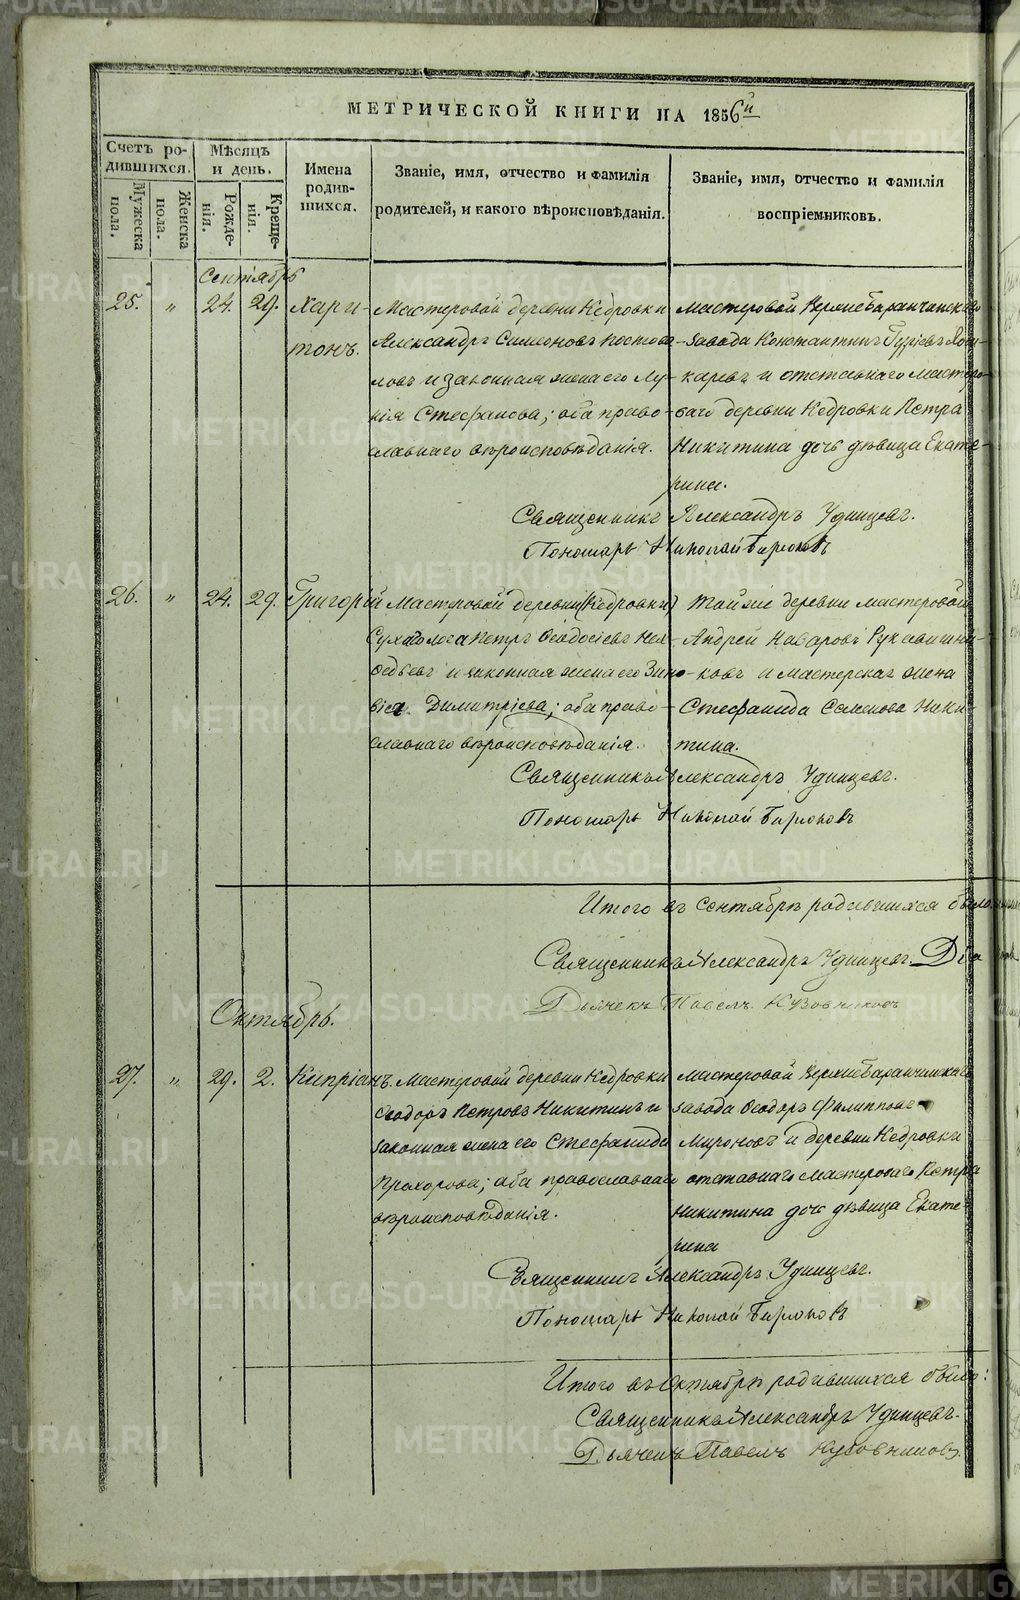 МЕТРИЧЕСКОЙ КНИГИ НА 1856й
Счетъ ро-
дившихся.
Мѣсяцъ
и день.
Имена
родив-
шихся.
Званіе, имя, отчество и фамилія
родителей, и какого вѣроисповѣданія.
Званіе, имя, отчество и фамилія
воспріемниковъ.
Мужеска
пола.
Женска
пола.
Рожде-
нія.
Креще-
нія.
Сентябрь
25. " 24. 29. Хари-
тонъ.
Мастеровой деревни Кедровки
Александръ Симеоновъ
и законная жена его Лу-
кія Стефанова; оба право-
славнаго вѣроисповѣданія.
Мастеровой Верхнебаранчинскаго
завода Константинъ
и отставнаго мастеро-
ваго деревни Кедровки Петра
Никитина дочь дѣвица Екате-
рина.
Священникъ Александръ Удинцевъ.
Пономарь Николай Бирюковъ
26. " 24. 29. Григорій
Мастеровой деревни (Кедровки)
Петръ Ѳеодосіевъ
и законная жена его Зино-
вія Димитріева; оба право-
славнаго вѣроисповѣданія.
Той же деревни мастеровой
Андрей Назаровъ Рукавишни-
ковъ и мастерская жена
Стефанида Семенова Ники-
тина.
Священникъ Александръ Удинцевъ.
Пономарь Николай Бирюковъ
Итого въ Сентябрѣ родившихся было
Священникъ Александръ Удинцевъ.
Дьячекъ Павелъ Кузовниковъ
Октябрь.
27. " 29. 2. Кипріанъ.
Мастеровой деревни Кедровки
Ѳеодоръ Петровъ Никитинъ и
законная жена его Стефанида
Прохорова; оба православнаго
вѣроисповѣданія.
Мастеровой Верхнебаранчинскаго
завода Ѳеодоръ Филипповъ
Мироновъ и деревни Кедровки
отставнаго мастероваго Петра
Никитина дочь дѣвица Екате-
рина
Священникъ Александръ Удинцевъ.
Пономарь Николай Бирюковъ
Итого въ Октябрѣ родившихся было:
Священникъ Александръ Удинцевъ.
Дьячекъ Павелъ Кузовниковъ.
METRIKI.GASO-URAL.RU